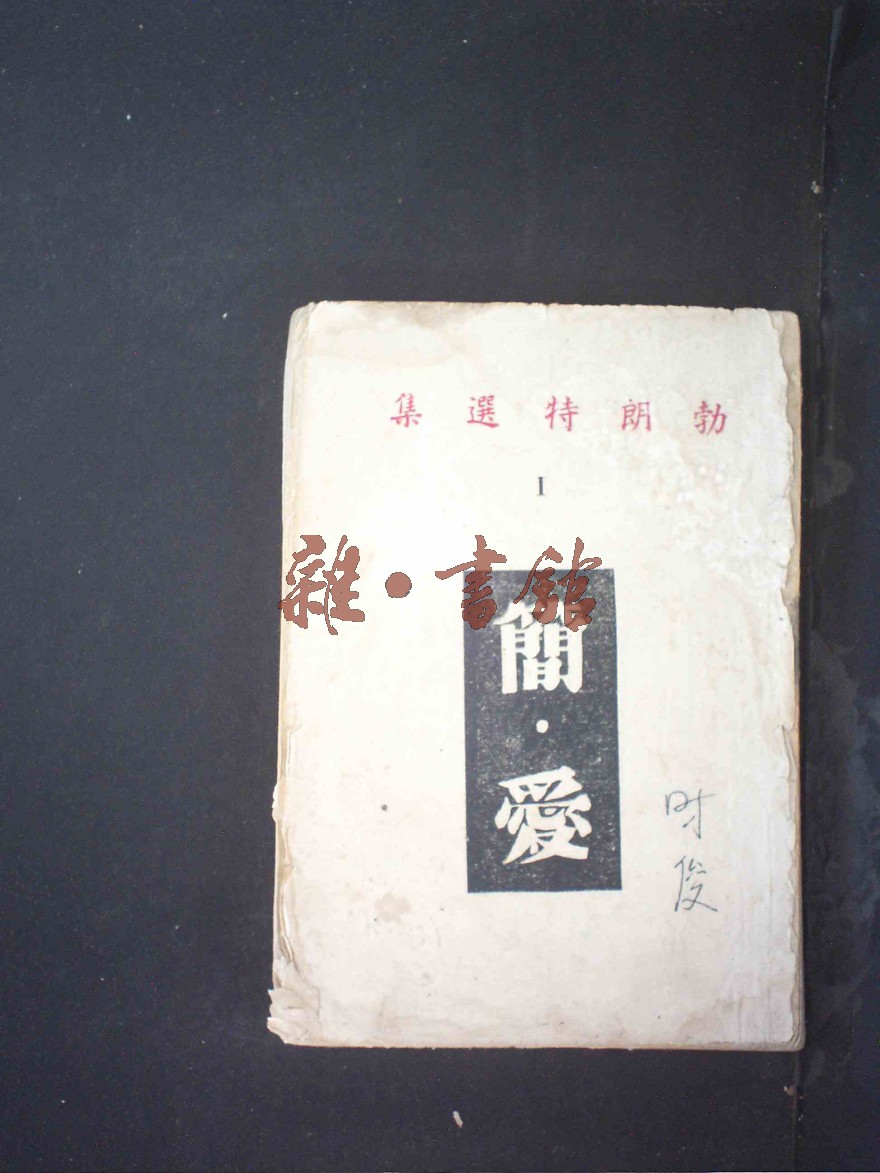 勃朗特選集
I
雜·書館
簡·愛
时俊